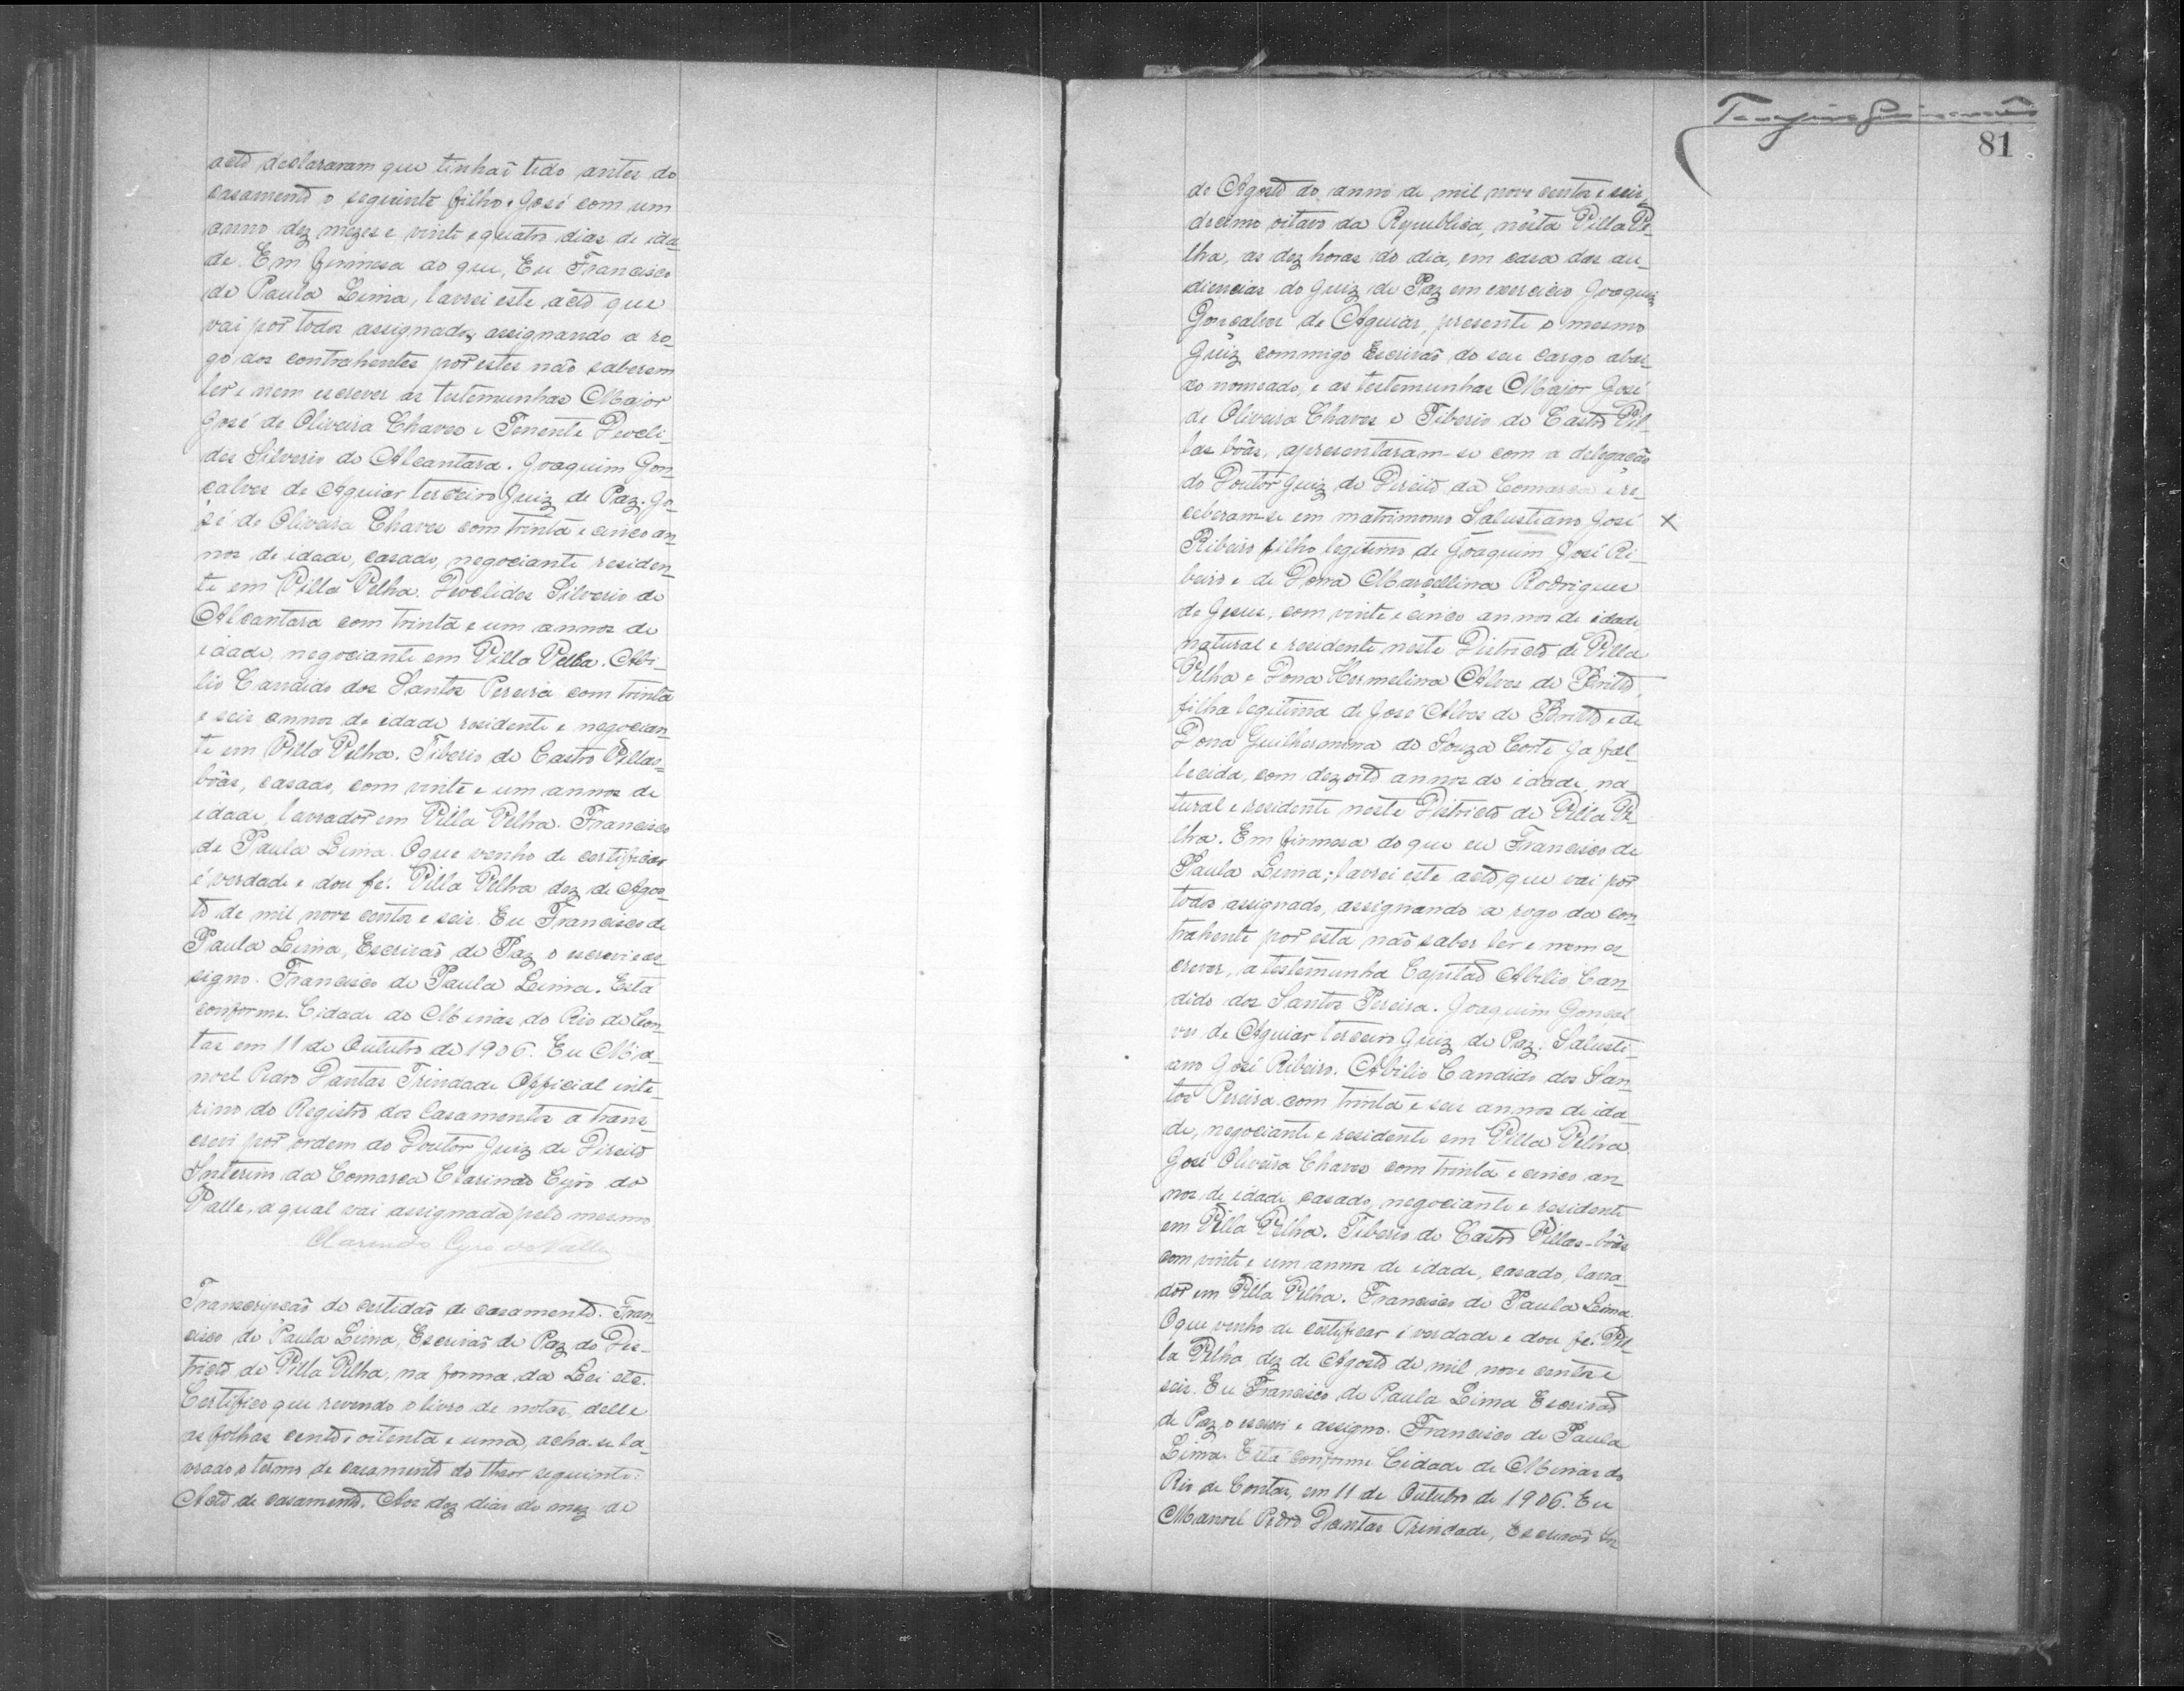 acto declararam que tinhaõ tido antes do
casamento o seguinte filho. José com um
anno dez mezes e vinte e quatro dias de ida-
de. Em firmesa do que, Eu Francisco
de Paula Lima, lavrei este acto que
vai por todos assignados, assignando a ro-
go dos contrahentes por estes não saberem
ler e nem escrever as testemunhas Major
José de Oliveira Chaves e Tenente Deocli-
des Silverio de Alcantara. Joaquim Gon-
çalves de Aguiar terceiro Juiz de Paz; Jo-
sé de Oliveira Chaves com trinta e cinco an-
nos de idade, casado, negociante residen-
te em Villa Velha. Deoclides Silverio de
Alcantara com trinta e um annos de
idade, negociante em Villa Velha. Abi-
lio Candido dos Santos Pereira com trinta
e seis annos de idade residente e negocian-
te em Villa Velha. Tiberio de Castro Villas-
bôas, casado, com vinte e um annos de
idade, lavrador em Villa Velha. Francisco
de Paula Lima. O que venho de certificar
é verdade e dou fé. Villa Velha dez de Agos-
to de mil nove centos e seis. Eu Francisco de
Paula Lima, Escrivaõ de Paz o escrevi e as-
signo. Francisco de Paula Lima. Está
conforme. Cidade de Minas do Rio de Con-
tas em 11 de Outubro de 1906. Eu Ma-
noel Pedro Dantas Trindade Official inte-
rino do Registro dos Casamentos a trans-
crevi por ordem do Doutor Juiz de Direito
Interino da Comarca Clarindo Cyro do
Valle, a qual vai assignada pelo mesmo
Clarindo Cyro do Valle
Transcripçaõ de certidaõ de casamento. Fran-
cisco de Paula Lima, Escrivaõ de Paz do Dis-
tricto de Villa Velha, na forma da Lei etc.
Certifico que revendo o livro de notas, delle
as folhas cento e oitenta e uma, acha-se la-
vrado o termo de casamento do theor seguinte:
Acto de casamento. Aos dez dias do mez de
81
de Agosto do anno de mil nove centos e seis,
decimo oitavo da Republica, nésta Villa Ve-
lha, as dez horas do dia, em casa das au-
diencias do Juiz de Paz em exercicio Joaquim
Gonçalves de Aguiar, presente o mesmo
Juiz commigo Escrivaõ do seu cargo abai-
xo nomeado, e as testemunhas Major José
de Oliveira Chaves e Tiberio de Castro Vil-
las bôas, apresentaram-se com a delegação
do Doutor Juiz de Direito da Comarca e re-
ceberam-se em matrimonio Salustiano José X
Ribeiro filho legitimo de Joaquim José Ri-
beiro e de Dona Marcellina Rodrigues
de Jesus, com vinte e cinco annos de idade
natural e residente neste Districto de Villa
Velha e Dona Hermelina Alves de Britto,
filha legitima de José Alves de Britto e de
Dona Guilhermina de Souza Corte ja fal-
lecida, com dezoito annos de idade, na-
tural e residente neste Districto de Villa Ve-
lha. Em firmesa do que eu Francisco de
Paula Lima; lavrei este acto, que vai por
todos assignado, assignando a rogo da con-
trahente por esta não saber ler e nem es-
crever, a testemunha Capitaõ Abilio Can-
dido dos Santos Pereira. Joaquim Gonçal-
ves de Aguiar terceiro Juiz de Paz; Salusti-
ano José Ribeiro. Abilio Candido dos San-
tos Pereira com trinta e seis annos de ida-
de, negociante e residente em Villa Velha.
José Oliveira Chaves com trinta e cinco an-
nos de idade, casado, negociante e residente
em Villa Velha. Tiberio de Castro Villas-bôas
com vinte e um annos de idade, casado, lavra-
dor em Villa Velha. Francisco de Paula Lima.
O que venho de certificar é verdade e dou fé. Vil-
la Velha, dez de Agosto de mil nove centos e
seis. Eu Francisco de Paula Lima Escrivaõ
de Paz, o escrevi e assigno. Francisco de Paula
Lima. Está conforme Cidade de Minas do
Rio de Contas, em 11 de Outubro de 1906. Eu
Manoel Pedro Dantas Trindade, Escrivaõ In